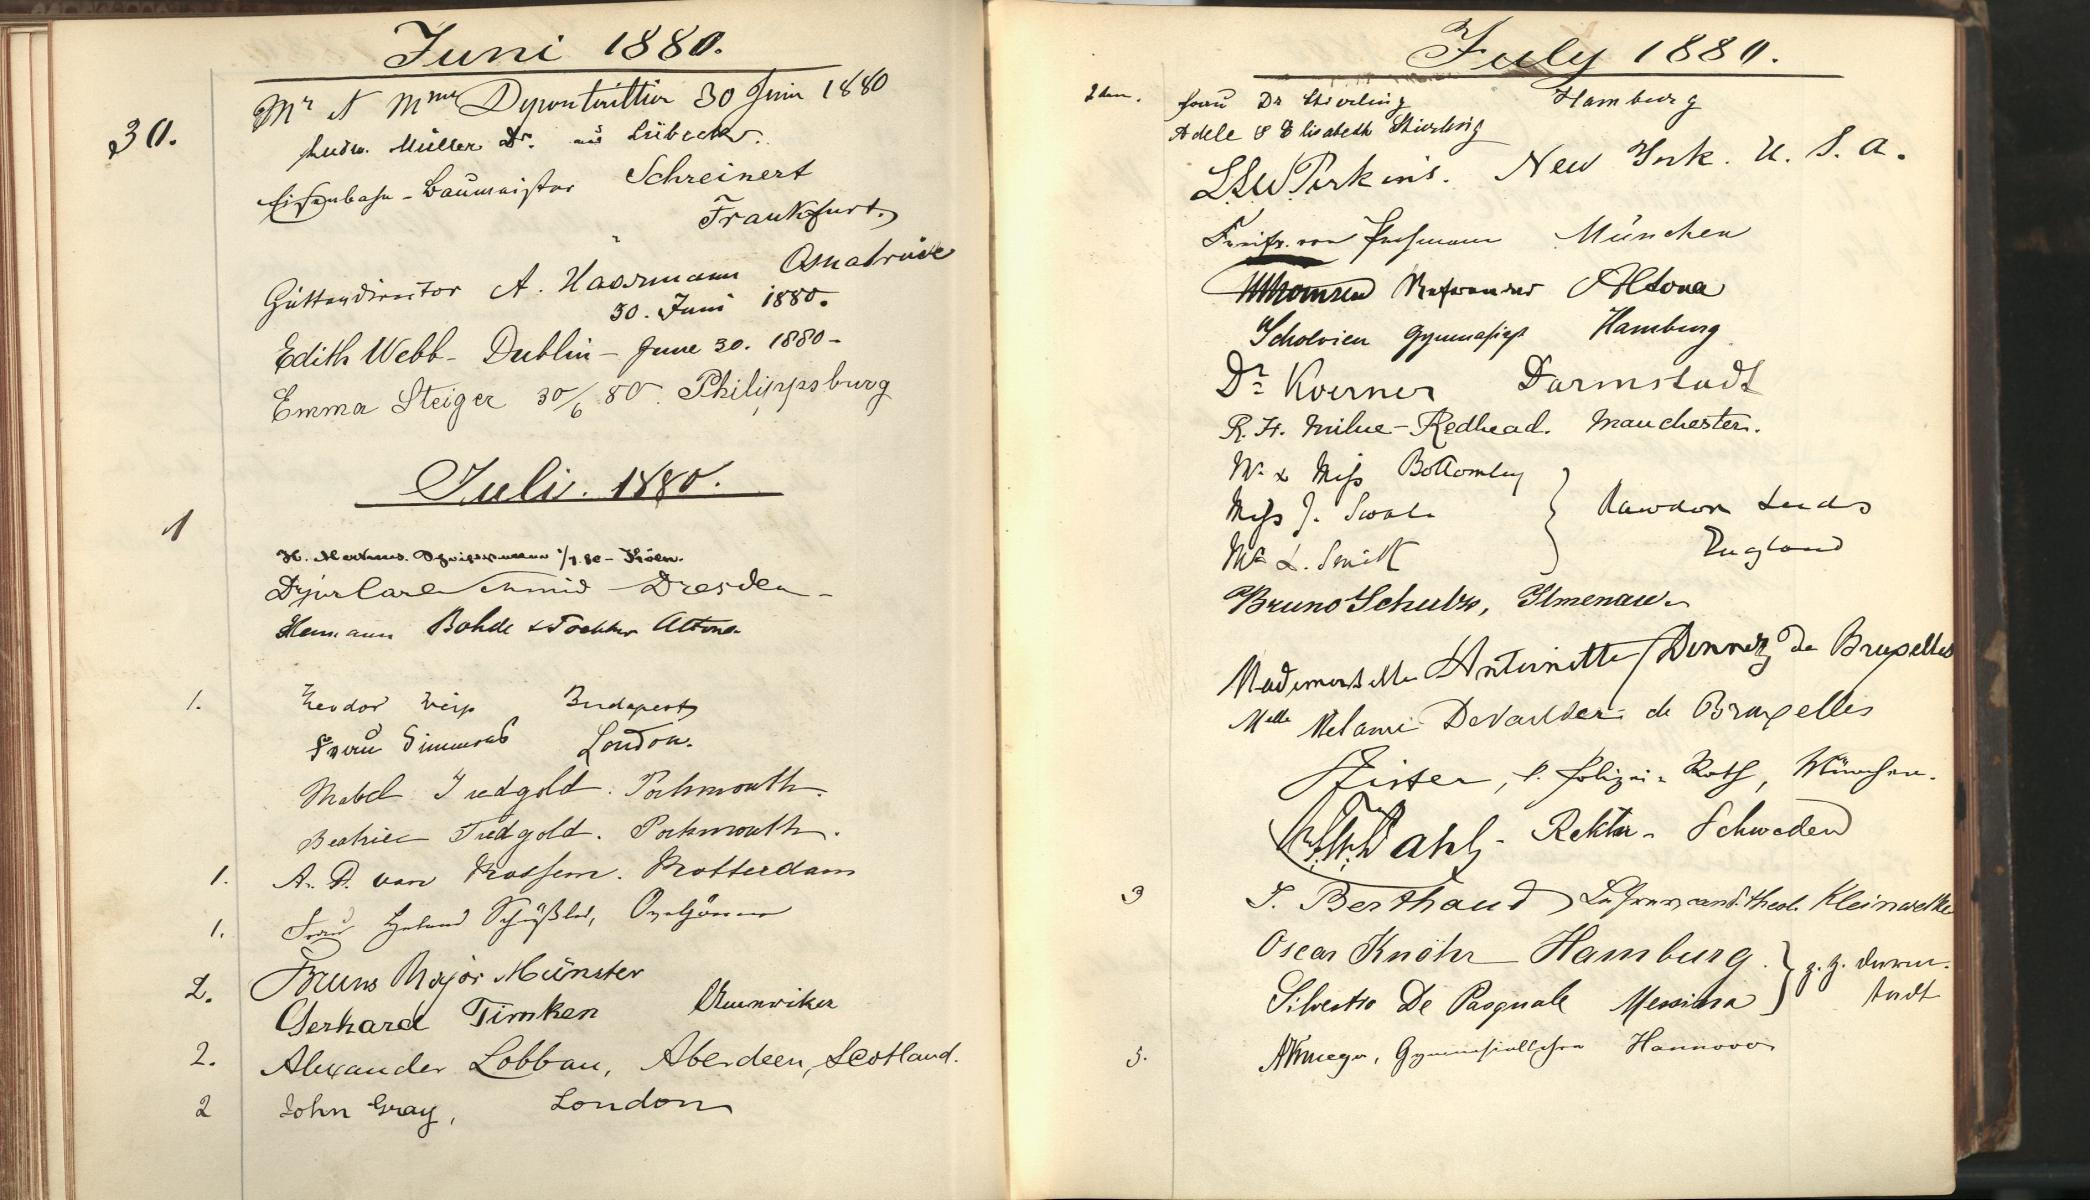 Juni 1880.
30.
Mr et Mme 30 Juin 1880
Ludw. Müller Dr. aus Lübeck.
Eisenbahn-Baumeister Schreinert
Frankfurt.
Hüttendirector A. Haarmann Osnabrück
30. Juni 1880.
Edith Webb - Dublin - June 30. 1880 -
Emma Steiger 30/6 80. Philippsburg
Juli. 1880.
1
H. Mertens. 1/7.80 - Köln.
Carl Schmid Dresden -
Hermann Bohde & Tochter Altona.
1. Budapest
Frau Simmons London.
Mabel Tredgold. Portsmouth.
Beatrice Tredgold. Portsmouth.
1. A. D. van Rossem. Rotterdam
1. Frau Schüßler, Ovelgönne
2. Bruns Major Münster
Gerhard Timken
2. Alexander Lobban, Aberdeen, Scotland.
2 John Gray, London
July 1880.
2ten. Frau Dr Stierling Hamburg
Adele & Elisabeth Stierling
L.L.W. Perkins. New York. U. S. A.
Freifr. von München
WThomsen Referendar Altona
Scholvien Gymnasiast Hamburg
Dr. Koerner Darmstadt
R. H. Milne-Redhead. Manchester.
Mr & Miss Bottomley
Miss J. Swale } Rawdon Leeds
Mr L. Smith England
Bruno Schultz, Ilmenau.
Mademoiselle Antoinette de Bruxelles
Melle Melanie de Bruxelles
Pfister, k. Polizei-Rath, München.
Dahl - Rektor - Schweden
3 J. Berthaud cand. theol. Kleinwelka
Oscar Knöhr Hamburg } z. Z. Darm-
Silvestro De Pasquale Messina } stadt
5. AKrueger, Gymnasiallehrer Hannover